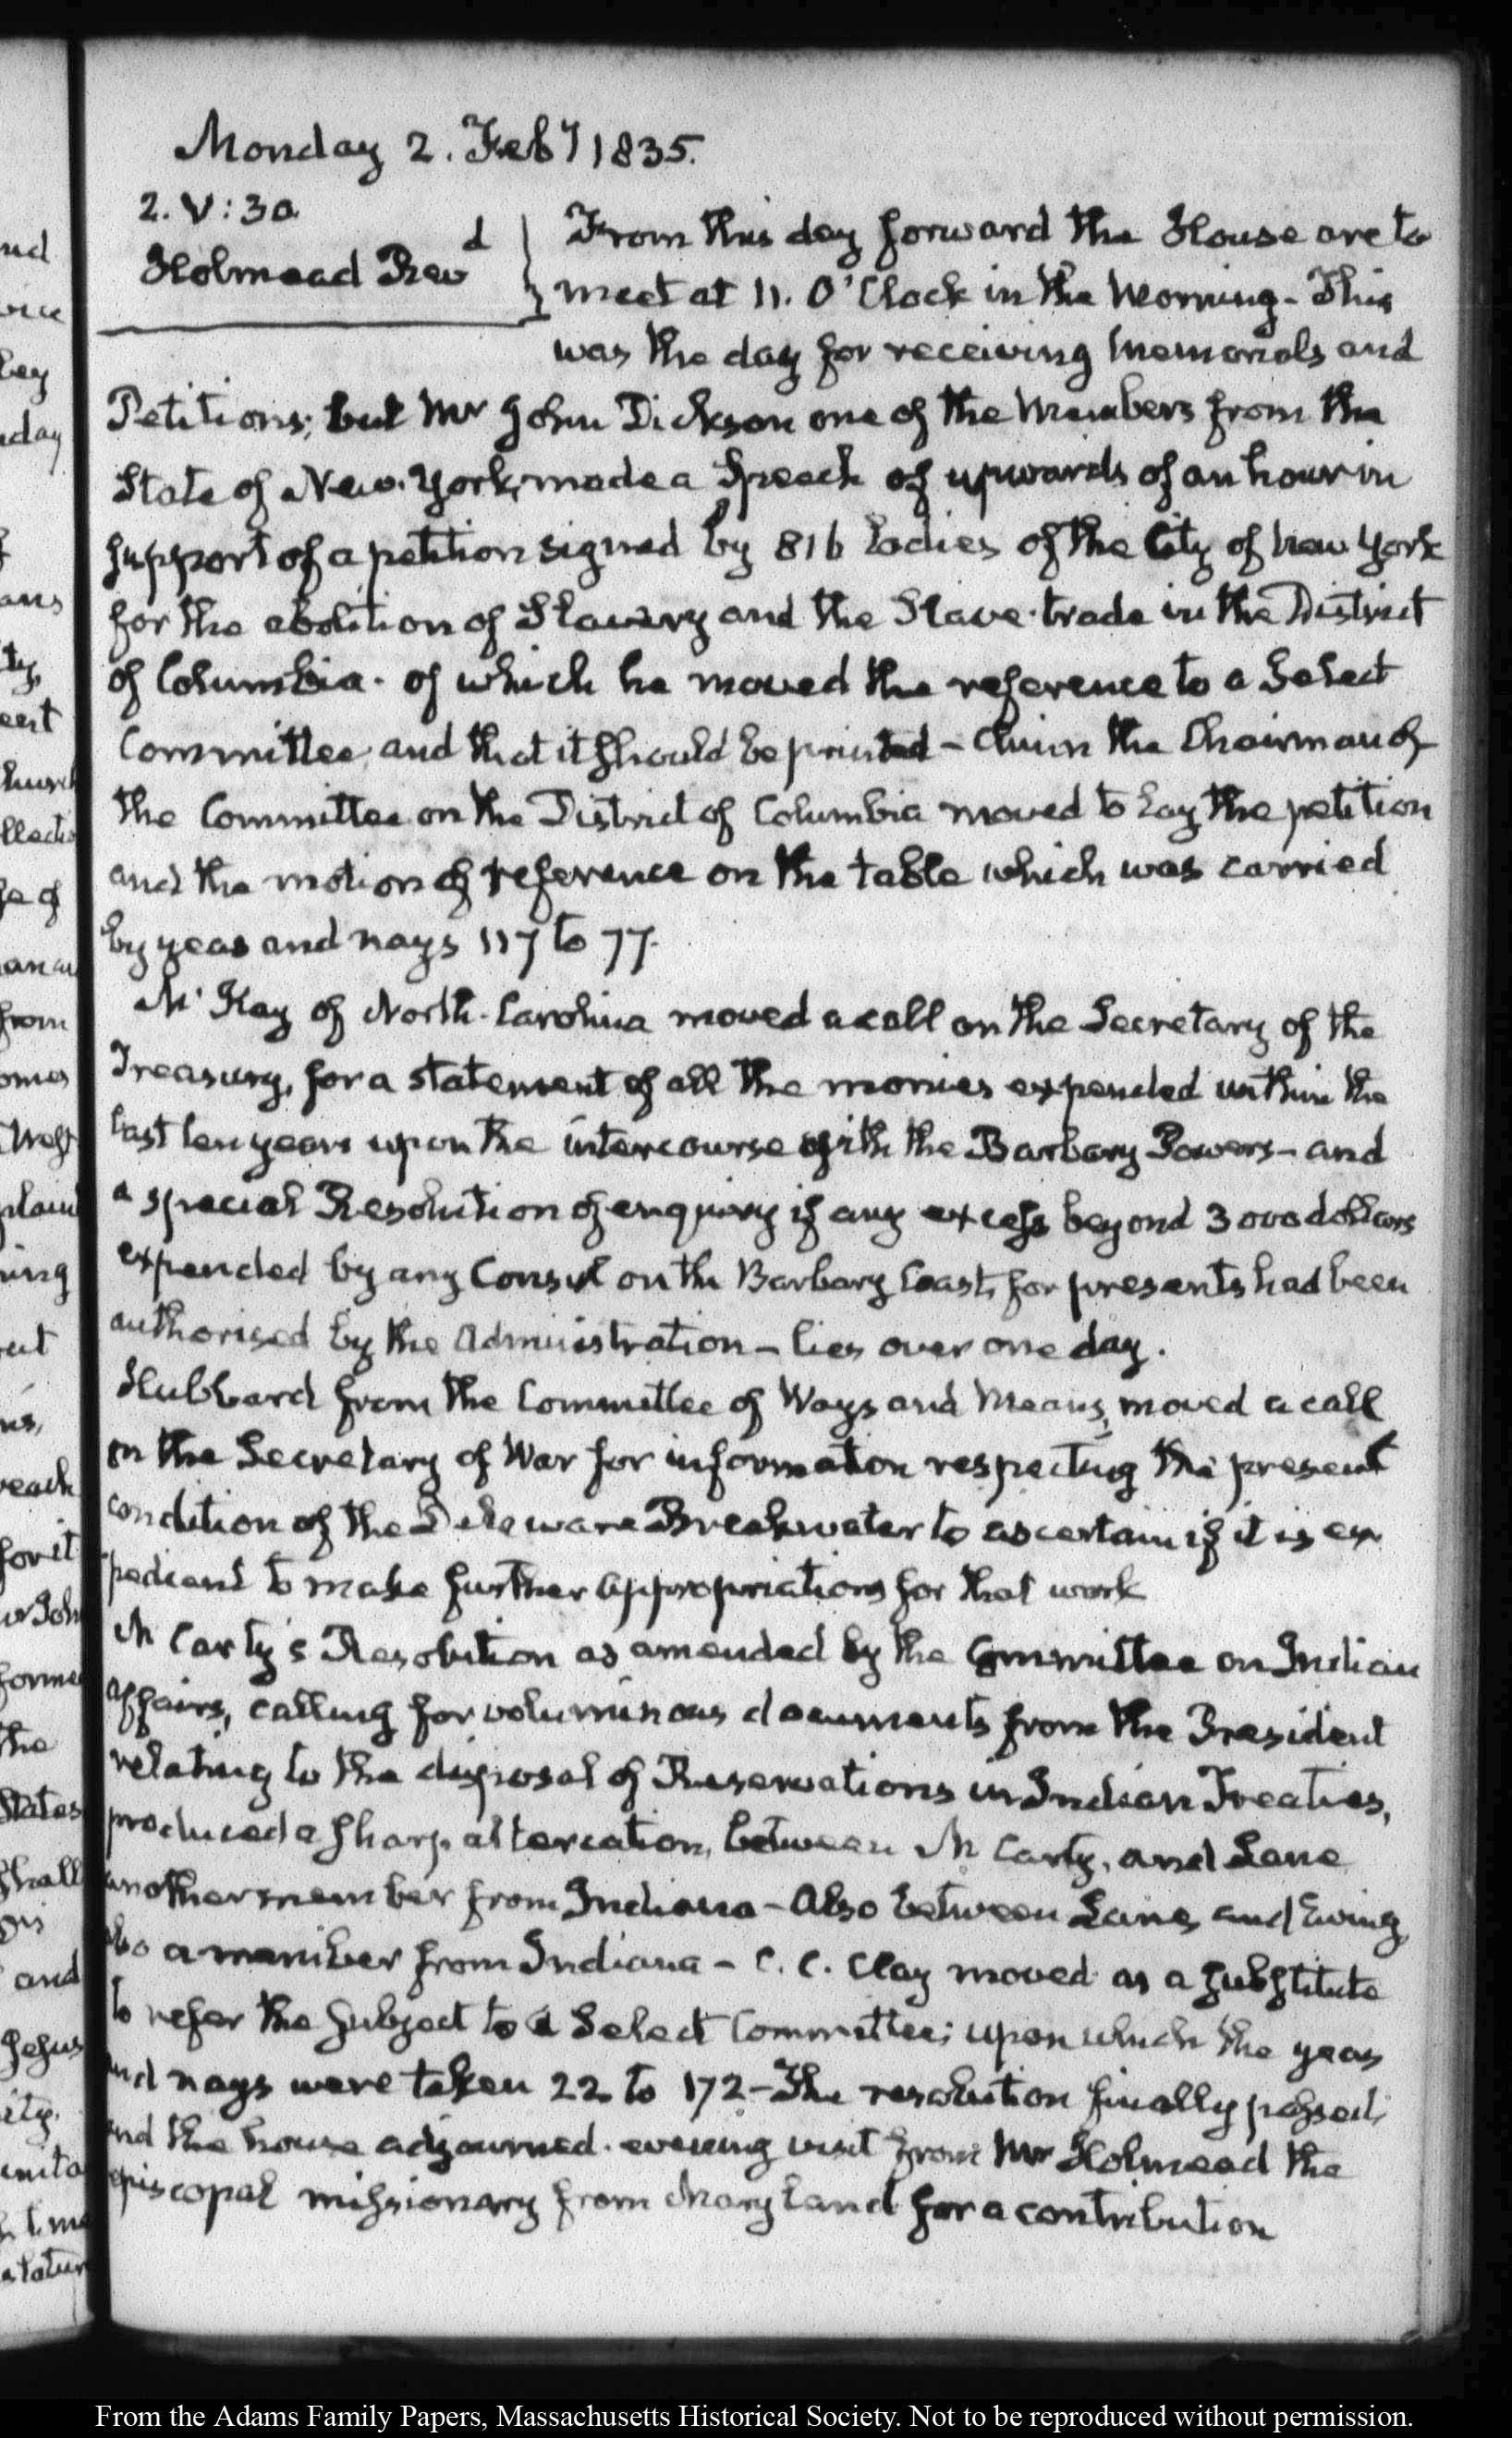 Monday 2. Feby 1835.
2. V:30.
Holmead Revd
From this day forward the House are to
meet at 11. O'Clock in the Morning - This
was the day for receiving Memorials and
Petitions; but Mr John Dickson one of the Members from the
State of New-York, made a Speech of upwards of an hour in
support of a petition signed by 816 Ladies of the City of New York
for the abolition of Slavery and the Slave-trade in the District
of Columbia - of which he moved the reference to a Select
Committee, and that it should be printed - Chinn the Chairman of
the Committee on the District of Columbia moved to lay the petition
and the motion of reference on the table which was carried
by yeas and nays 117 to 77.
McKay of North-Carolina moved a call on the Secretary of the
Treasury, for a statement of all the monies expended within the
last ten years upon the intercourse with the Barbary Powers - and
a special Resolution of enquiry if any excess beyond 3000 dollars
expended by any Consul on the Barbary Coast, for presents had been
authorised by the Administration - lies over one day.
Hubbard from the Committee of Ways and Means, moved a call
on the Secretary of War for information respecting the present
condition of the Delaware Breakwater to ascertain if it is ex
pedient to make further appropriations for that work
McCarty's Resolution as amended by the Committee on Indian
Affairs, calling for voluminous documents from the President
relating to the disposal of Reservations in Indian Treaties,
produced a sharp altercation, between McCarty, and Lane
another member from Indiana - Also between Lane, and Ewing,
also a member from Indiana - C. C. Clay moved as a substitute
to refer the subject to a Select Committee; upon which the yeas
and nays were taken 22 to 172 - The resolution finally passed,
and the house adjourned. evening visit from Mr Holmead the
episcopal missionary from Maryland for a contribution
From the Adams Family Papers, Massachusetts Historical Society. Not to be reproduced without permission.